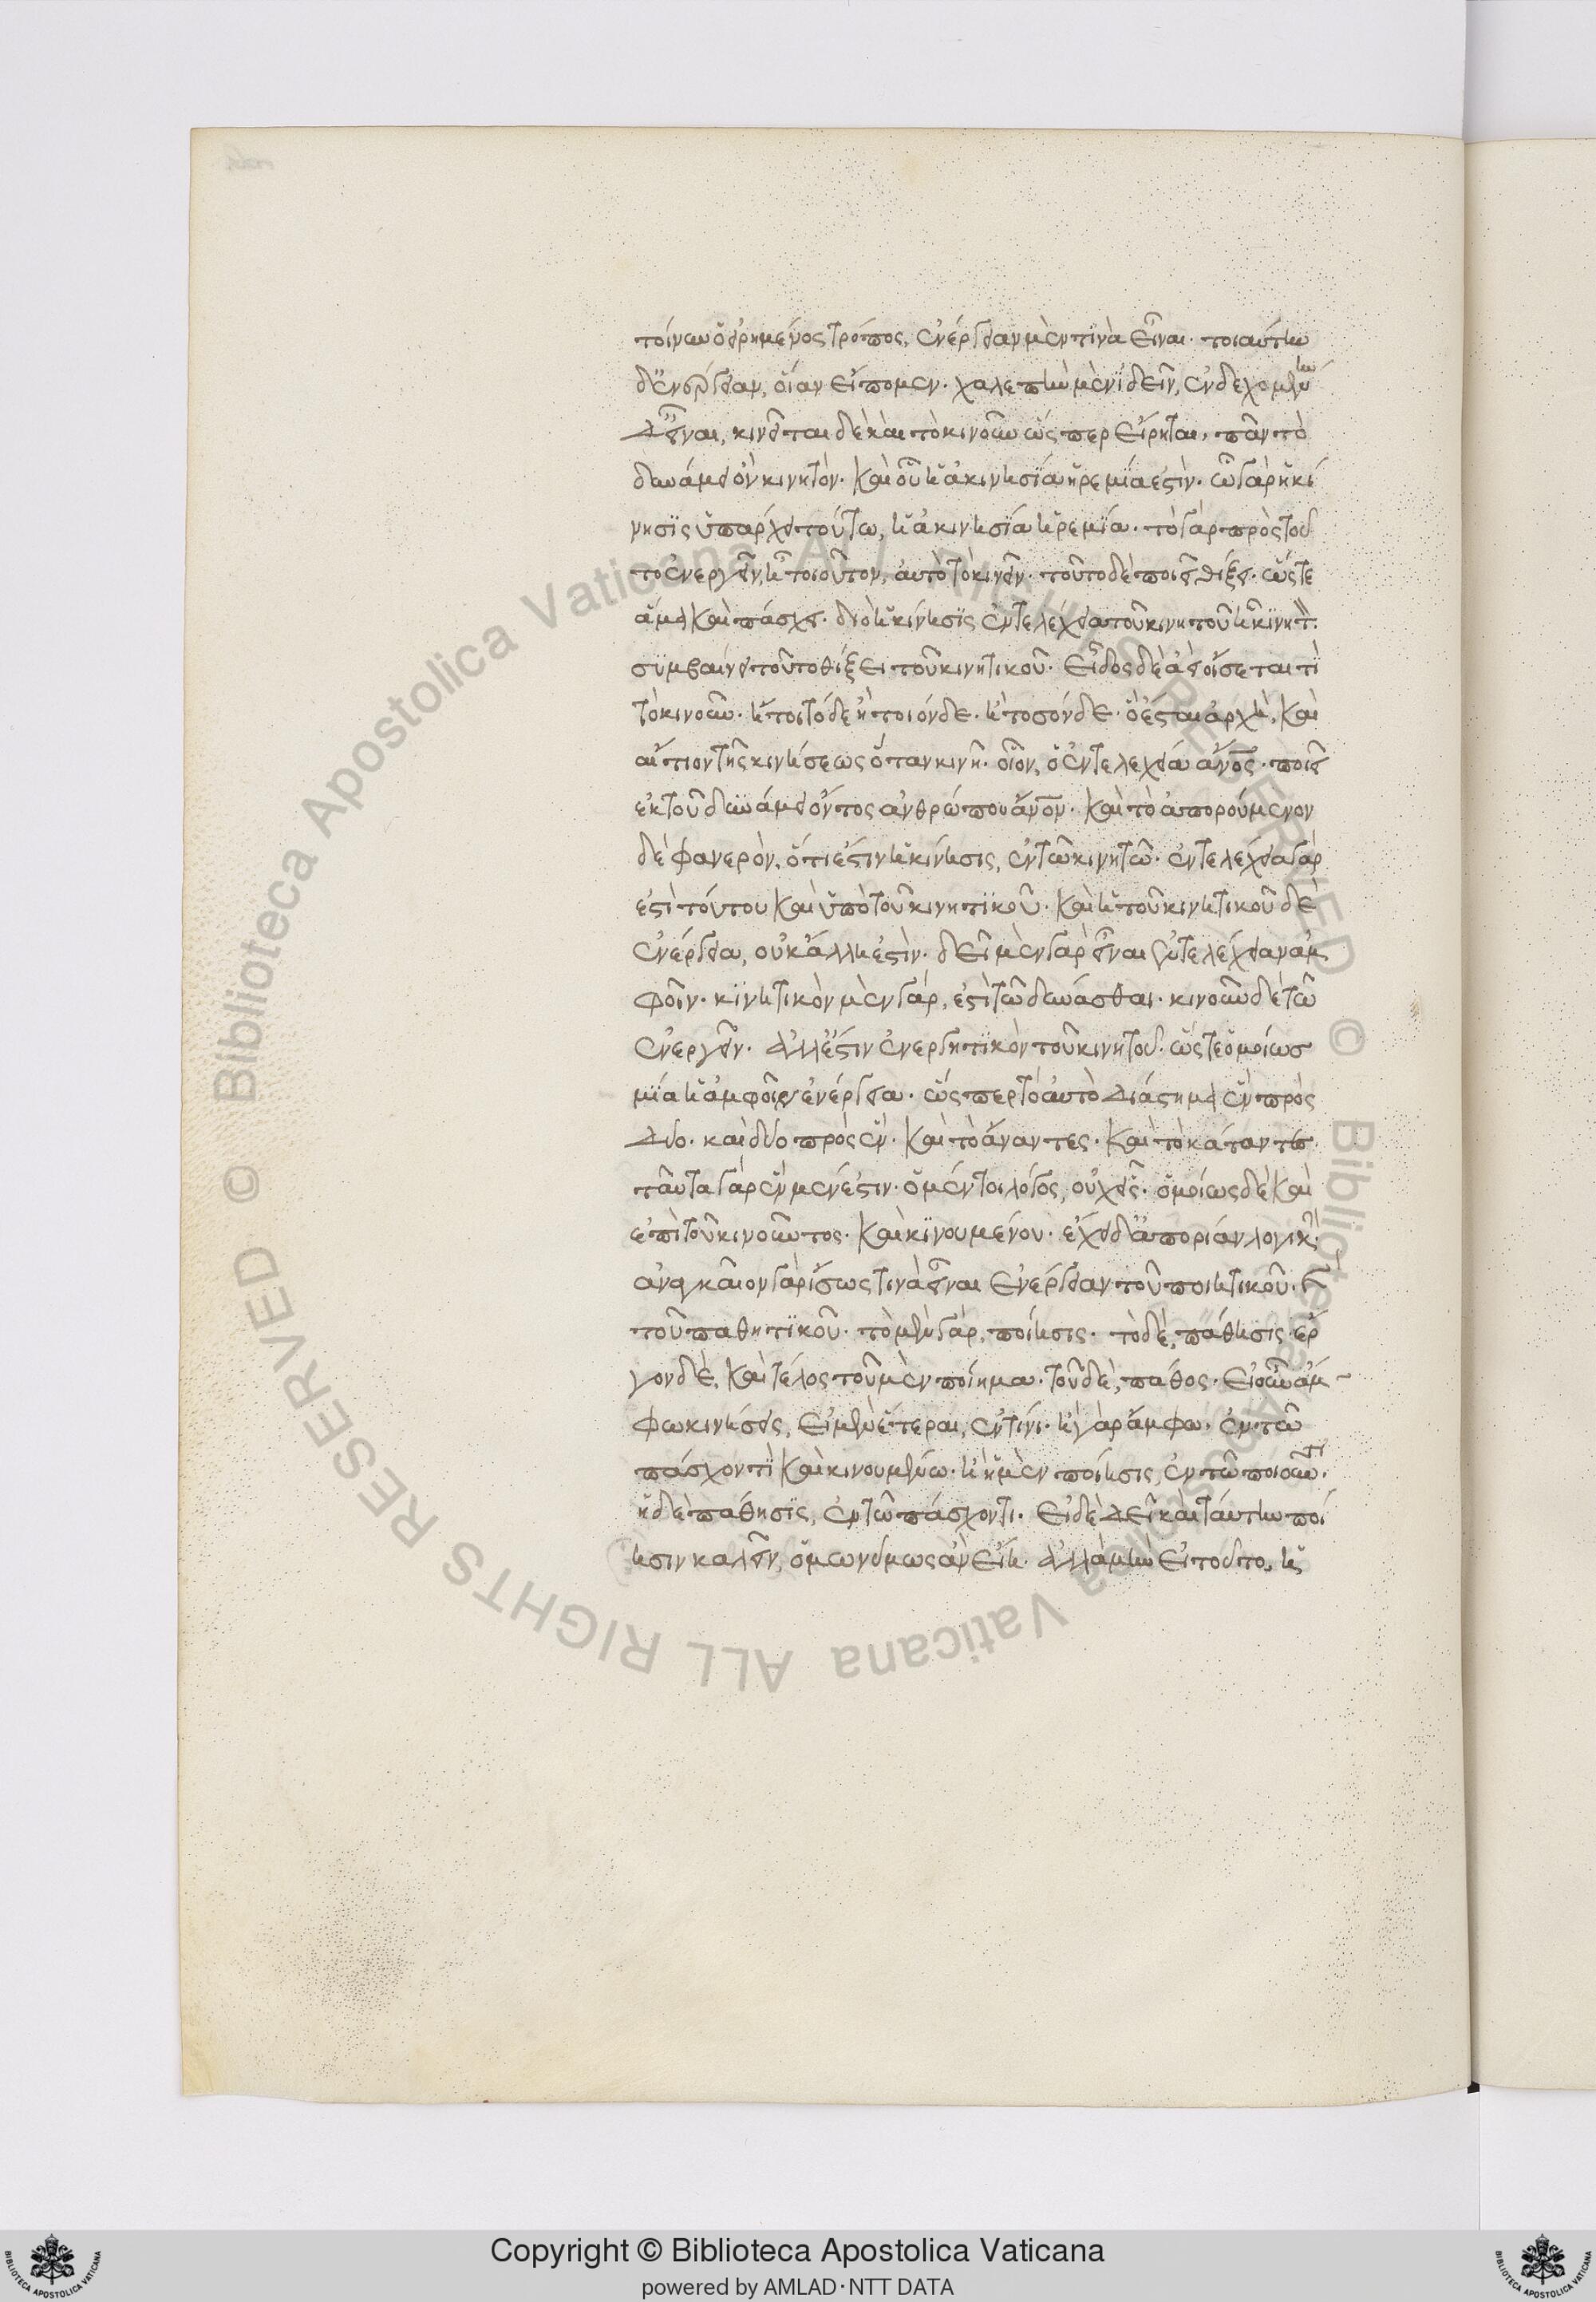 τοίνυν ὁ εἰρημένος τρόπος, ἐνέργειαν μὲν τινὰ εἶναι· τοιαύτην
δ' ἐνέργειαν, οἵαν εἴπομεν· χαλεπὴν μὲν ἰδεῖν, ἐνδεχομένην
δ' εἶναι, κινεῖται δὲ καὶ τὸ κινοῦν ὥς περ εἴρηται, πᾶν τὸ
δυνάμει ὂν κινητόν· καὶ οὗ ἡ ἀκινησία ἠρεμία ἐστὶν· ᾧ γὰρ ἡ κί
νησις ὑπάρχει τούτω, ἡ ἀκινησία ἠρεμία· τὸ γὰρ πρὸς τοῦ
το ἐνεργεῖν, ἧ τοιοῦτον, αὐτὸ τὸ κινεῖν· τοῦτο δὲ ποιεῖ θίξει· ὥς τε
ἅμα καὶ πάσχει· διὸ ἡ κίνησις ἐντελέχεια τοῦ κινητοῦ ἧ κινητ.
συμβαίνει τοῦτο θίξει τοῦ κινητικοῦ· εἶδος δὲ ἀεὶ οἴσεται τὶ
τὸ κινοῦν· ἤτοι τόδε ἢ τοιόνδε· ἢ τοσόνδε· ὃ ἔσται ἀρχὴ, καὶ
αἴτιον τῆς κινήσεως ὅταν κινῆ· οἷον, ὁ ἐντελεχεία ἄνος· ποιεῖ
ἐκ τοῦ δυνάμει ὄντος ἀνθρώπου ἄνον· καὶ τὸ ἀπορούμενον
δὲ φανερὸν, ὅτι ἐστὶν ἡ κίνησις, ἐν τῶ κινητῶ· ἐντελέχεια γάρ
ἐστὶ τούτου καὶ ὑπὸ τοῦ κινητικοῦ· καὶ ἡ τοῦ κινητικοῦ δὲ
ἐνέργεια, οὐκ ἄλλη ἐστὶν· δεῖ μὲν γὰρ εἶναι ἐντελέχειαν ἀμ
φοῖν· κινητικὸν μὲν γάρ, ἐστὶ τῶ δύνασθαι· κινοῦν δὲ τῶ
ἐνεργεῖν· ἀλλ' ἔστιν ἐνεργητικὸν τοῦ κινητοῦ· ὥς τε ὁμοίως
μία ἡ ἀμφοῖν ἐνέργεια· ὥς περ τὸ αὐτὸ διάστημα ἓν πρὸς
δύο· καὶ δύο πρὸς ἓν· καὶ τὸ ἄναντες· καὶ τὸ κάταντες·
ταῦτα γὰρ ἓν μέν ἐστιν· ὁ μέντοι λόγος, οὐχ εἷς· ὁμοίως δὲ καὶ
ἐπὶ τοῦ κινοῦντος· καὶ κινουμένου· ἔχει δ' ἀπορίαν λογικ.
ἀναγκαῖον γὰρ ἴσως τινὰ εἶναι ἐνέργειαν τοῦ ποιητικοῦ· καὶ
τοῦ παθητικοῦ· τὸ μὲν γάρ, ποίησις· τὸ δὲ, πάθησις· ἔρ
γον δὲ, καὶ τέλος τοῦ μὲν ποίημα· τοῦ δὲ, πάθος· εἰ οὖν ἄμ
φω κινήσεις, εἰ μὲν ἕτεραι, ἐν τίνι· ἢ γὰρ ἄμφω, ἐν τῶ
πάσχοντι καὶ κινουμένω· ἢ ἡ μὲν ποίησις, ἐν τῶ ποιοῦντι·
ἡ δὲ πάθησις, ἐν τῶ πάσχοντι· εἰ δὲ δεῖ καὶ ταύτην ποί
ησιν καλεῖν, ὁμωνύμως ἂν εἴη· ἀλλὰ μὴν εἰ τοῦτο, ἡ